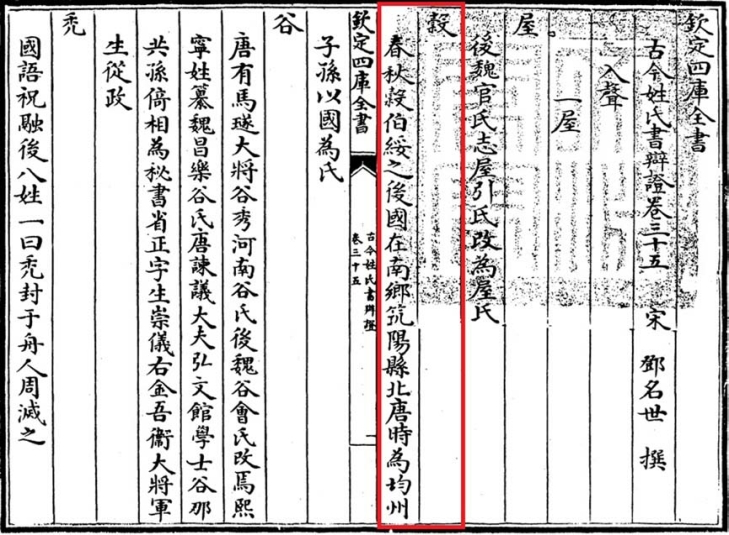 欽定四庫全書
古今姓氏書辯證卷三十五 宋 鄧名世 撰
入聲
一屋
屋。
後魏官氏志屋引氏改為屋氏
穀
春秋穀伯綏之後國在南鄉筑陽縣北唐時為均州
欽定四庫全書
古今姓氏書辯證
卷三十五
一
子孫以國為氏
谷
唐有馬璲大將谷秀河南谷氏後魏谷會氏改焉熙
寧姓纂魏昌樂谷氏唐諫議大夫弘文館學士谷那
共孫倚相為秘書省正字生崇儀右金吾衛大將軍
生從政
禿
國語祝融後八姓一曰禿封于舟人周滅之